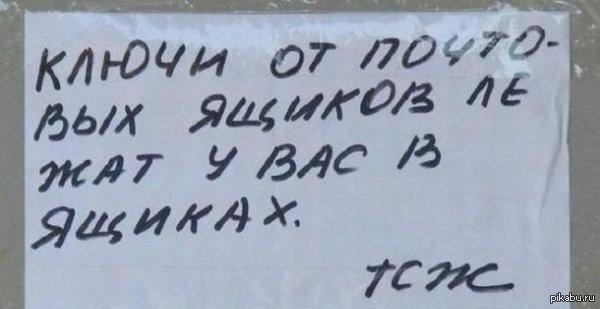 КЛЮЧИ ОТ ПОЧТО-
ВЫХ ЯЩИКОВ ЛЕ
ЖАТ У ВАС В
ЯЩИКАХ.
ТСЖ
pikabu.ru